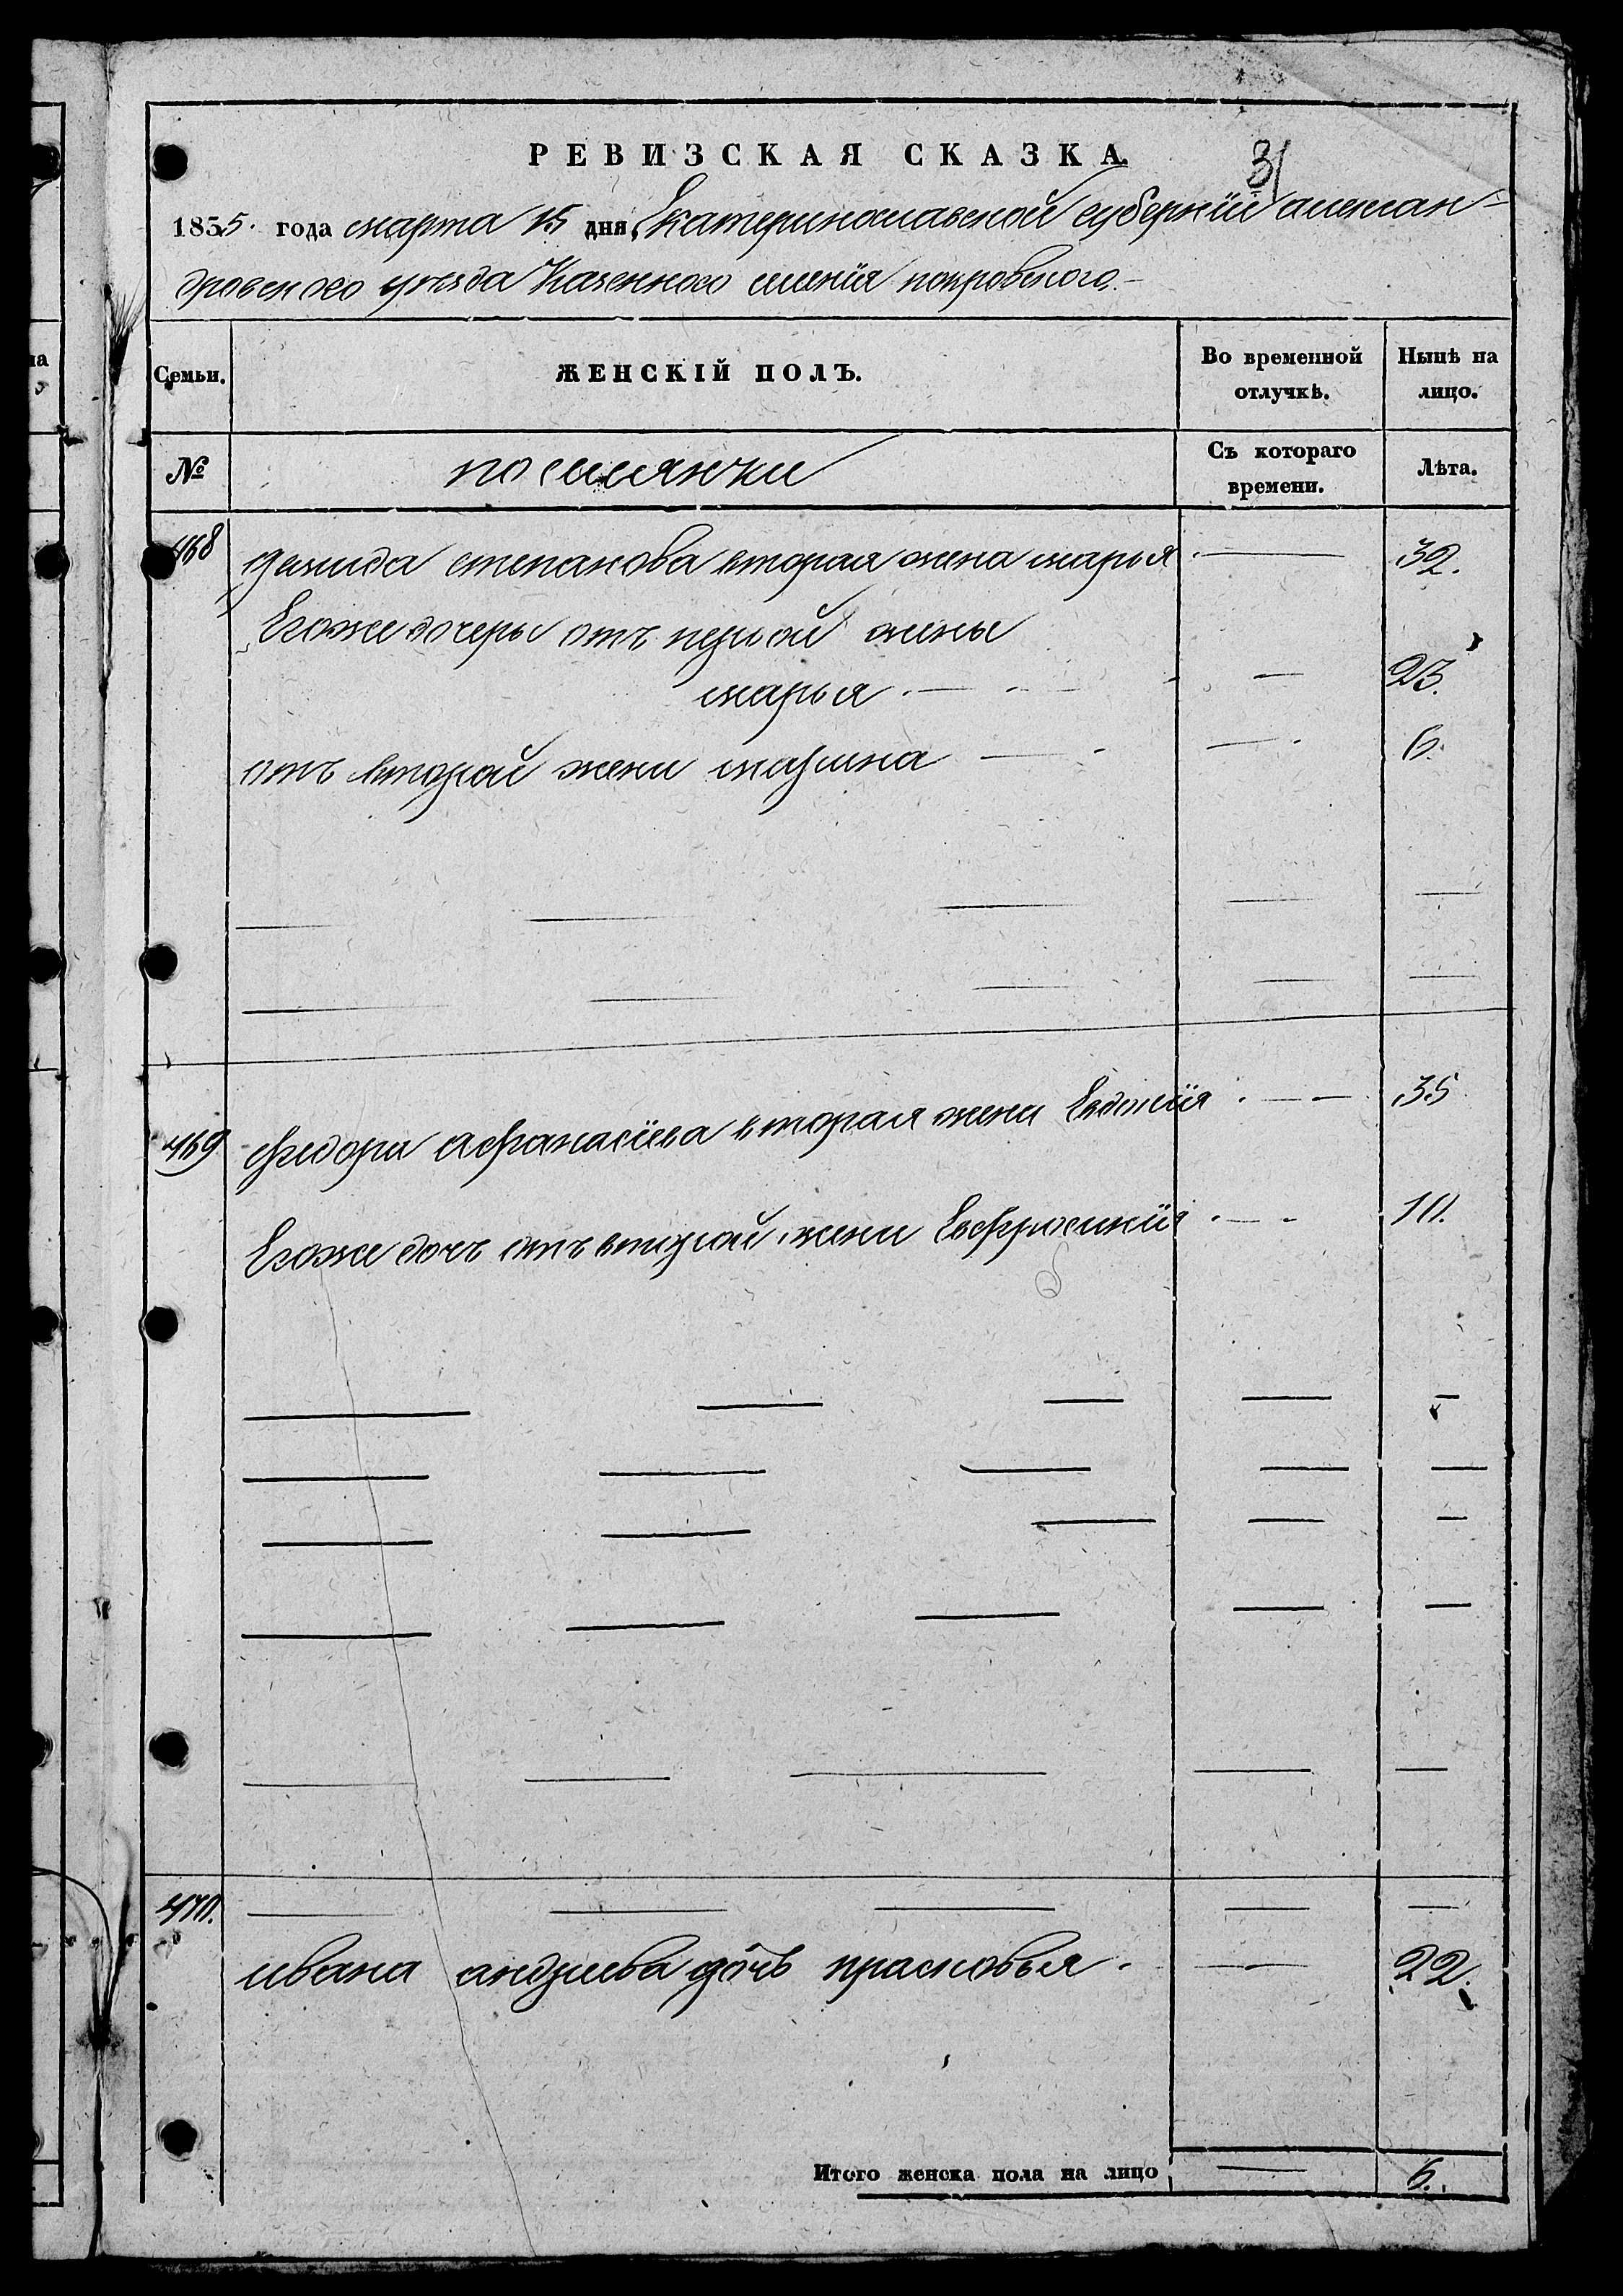 РЕВИЗСКАЯ СКАЗКА.
31
1855. года марта 15 дня, Екатеринославской губерніи алексан-
дровского уезда Казенного имѣнія покровского.
Семьи.
ЖЕНСКІЙ ПОЛЪ.
Во временной отлучкѣ.
Нынѣ на лицо.
№
поселянки
Съ котораго времени.
Лѣта.
468 демида степанова вторая жена марья — 32.
Егоже дочеры отъ первой жены
марья — — 23.
отъ второй жени марина — — 6.
469 федора афанасіева вторая жена Евдокія — 35
Егоже дочъ отъ второй жени Евфросинія — 10.
470. — — — — —
ивана андриева дочъ прасковья — 22.
Итого женска пола на лицо — 6.